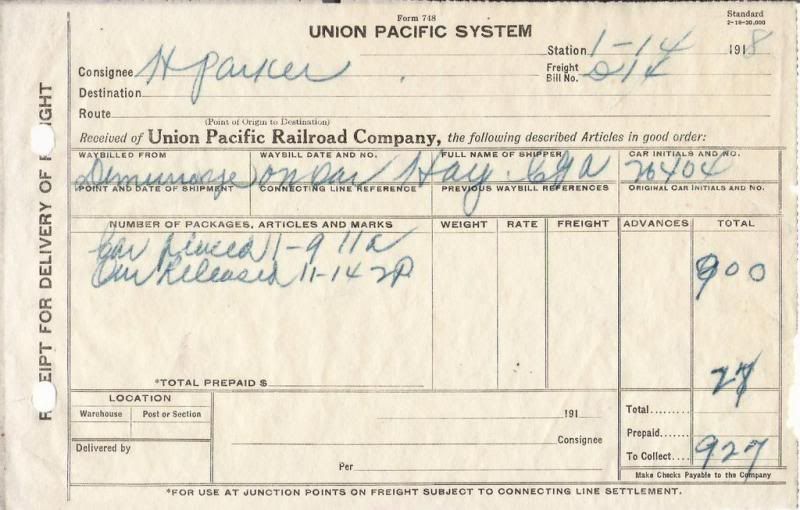 Form 748
Standard
2-18-30,000
UNION PACIFIC SYSTEM
Station 1-14 1918
Consignee H Parker
Freight Bill No. 214
Destination
Route
(Point of Origin to Destination)
Received of Union Pacific Railroad Company, the following described Articles in good order:
WAYBILLED FROM WAYBILL DATE AND NO. FULL NAME OF SHIPPER CAR INITIALS AND NO.
Demurrage on Car Hay 26404
POINT AND DATE OF SHIPMENT CONNECTING LINE REFERENCE PREVIOUS WAYBILL REFERENCES ORIGINAL CAR INITIALS AND NO.
NUMBER OF PACKAGES, ARTICLES AND MARKS WEIGHT RATE FREIGHT ADVANCES TOTAL
Car 11-9 11a
Car Released 11-14 2P 900
27
*TOTAL PREPAID $
LOCATION
Warehouse Post or Section
191
Total
Consignee
Prepaid
Delivered by
To Collect 927
Per
Make Checks Payable to the Company
*FOR USE AT JUNCTION POINTS ON FREIGHT SUBJECT TO CONNECTING LINE SETTLEMENT.
R EIPT FOR DELIVERY OF F IGHT